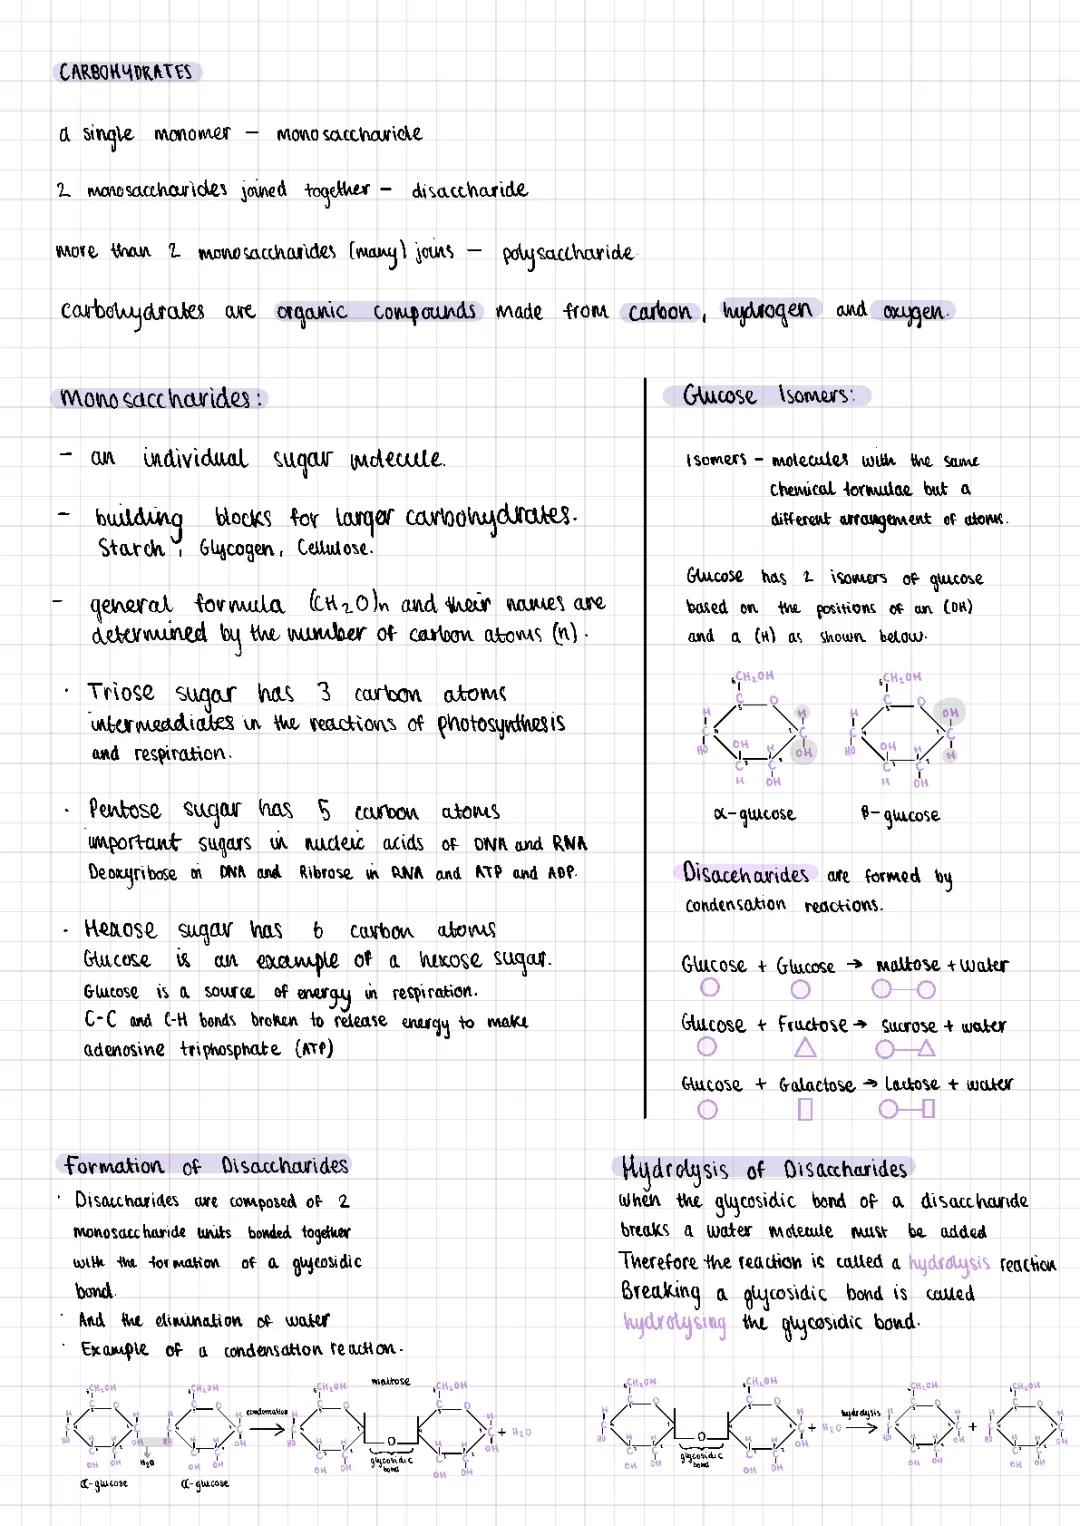 CARBOHYDRATES
a single monomer – monosaccharide
2 monosaccharides joined together – disaccharide
more than 2 monosaccharides (many) joins – polysaccharide
Carbohydrates are organic compounds made from carbon, hydrogen and oxygen.
Monosaccharides:
- an individual sugar molecule.
- building blocks for larger carbohydrates.
Starch, Glycogen, Cellulose.
- general formula (CH2O)n and their names are
determined by the number of carbon atoms (n).
· Triose sugar has 3 carbon atoms
intermeadiates in the reactions of photosynthesis
and respiration.
· Pentose sugar has 5 carbon atoms
important sugars in nucleic acids of DNA and RNA
Deoxyribose in DNA and Ribrose in RNA and ATP and ADP.
· Hexose sugar has 6 carbon atoms
Glucose is an example of a hexose sugar.
Glucose is a source of energy in respiration.
C-C and C-H bonds broken to release energy to make
adenosine triphosphate (ATP)
Glucose Isomers:
Isomers – molecules with the same
chemical formulae but a
different arrangement of atoms.
Glucose has 2 isomers of glucose
based on the positions of an (OH)
and a (H) as shown below.
6CH2OH 6CH2OH
H C5 O H H C5 O OH
C C1 C C1
HO OH H OH HO OH H H
C3 C2 C3 C2
H OH H OH
α-glucose β-glucose
Disaccharides are formed by
condensation reactions.
Glucose + Glucose → maltose + water
Glucose + Fructose → sucrose + water
Glucose + Galactose → Lactose + water
Formation of Disaccharides
· Disaccharides are composed of 2
monosaccharide units bonded together
with the formation of a glycosidic
bond.
· And the elimination of water
· Example of a condensation reaction.
maltose
CH2OH CH2OH CH2OH CH2OH
condensation
O + H2O
H2O
glycosidic
bond
OH OH OH OH OH OH OH OH
α-glucose α-glucose
Hydrolysis of Disaccharides
when the glycosidic bond of a disaccharide
breaks a water molecule must be added
Therefore the reaction is called a hydrolysis reaction
Breaking a glycosidic bond is called
hydrolysing the glycosidic bond.
CH2OH CH2OH CH2OH CH2OH
hydrolysis
O + H2O +
glycosidic
bond
OH OH OH OH OH OH OH OH